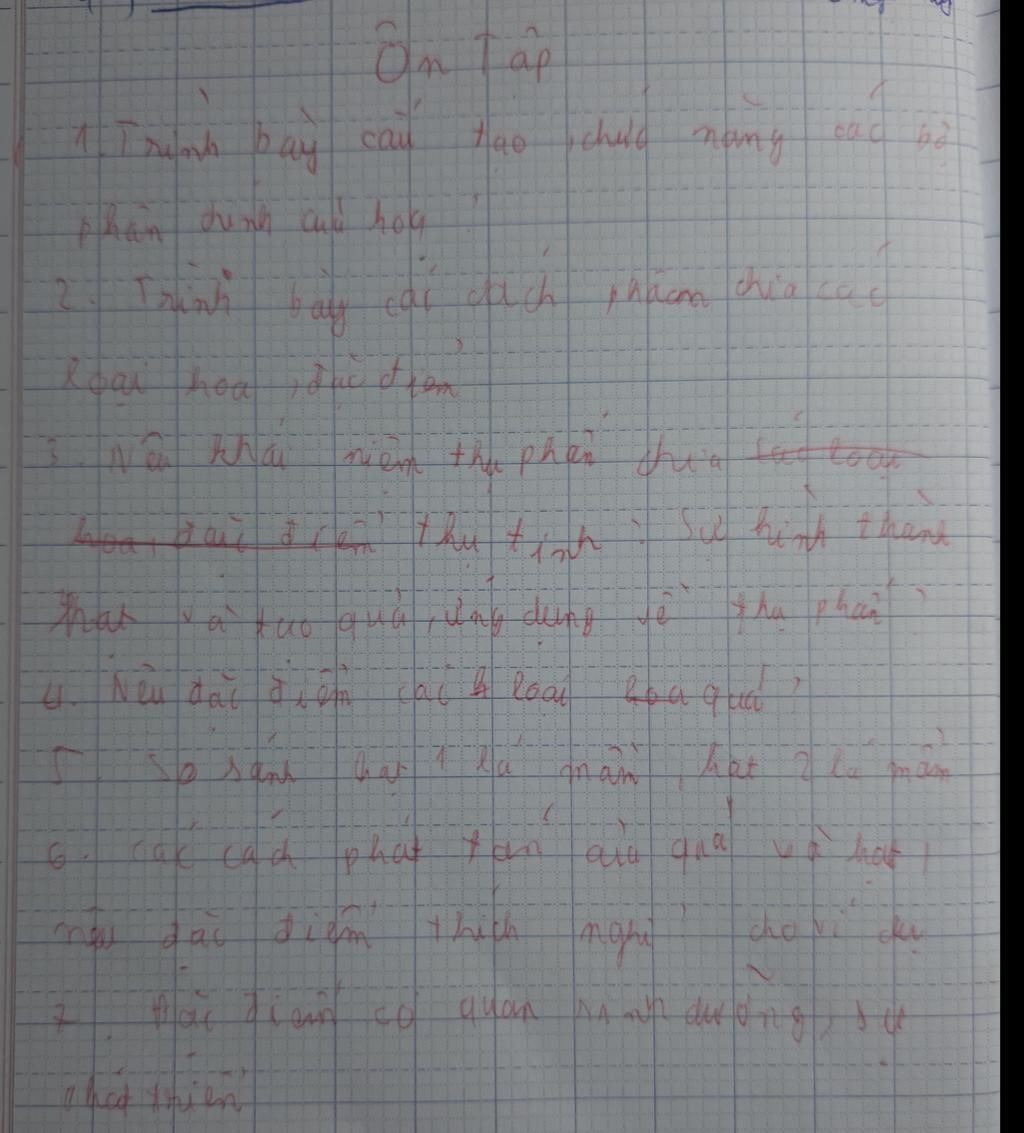 Ôn Tập
1. Trình bày cấu tạo, chức năng các bộ
phận chính của hoa
2. Trình bày các cách phân chia các
loại hoa, đặc điểm
3. Nêu khái niệm thụ phấn chưa các loại
hoa, đặc điểm thụ tinh. Sự hình thành
hạt và tạo quả, ứng dụng về thụ phấn?
4. Nêu đặc điểm các loại hoa quả?
5. So sánh hạt 1 lá mầm, hạt 2 lá mầm
6. Các cách phát tán của quả và hạt,
nêu đặc điểm thích nghi cho ví dụ
7. Đặc điểm cơ quan sinh dưỡng, sự
phát triển